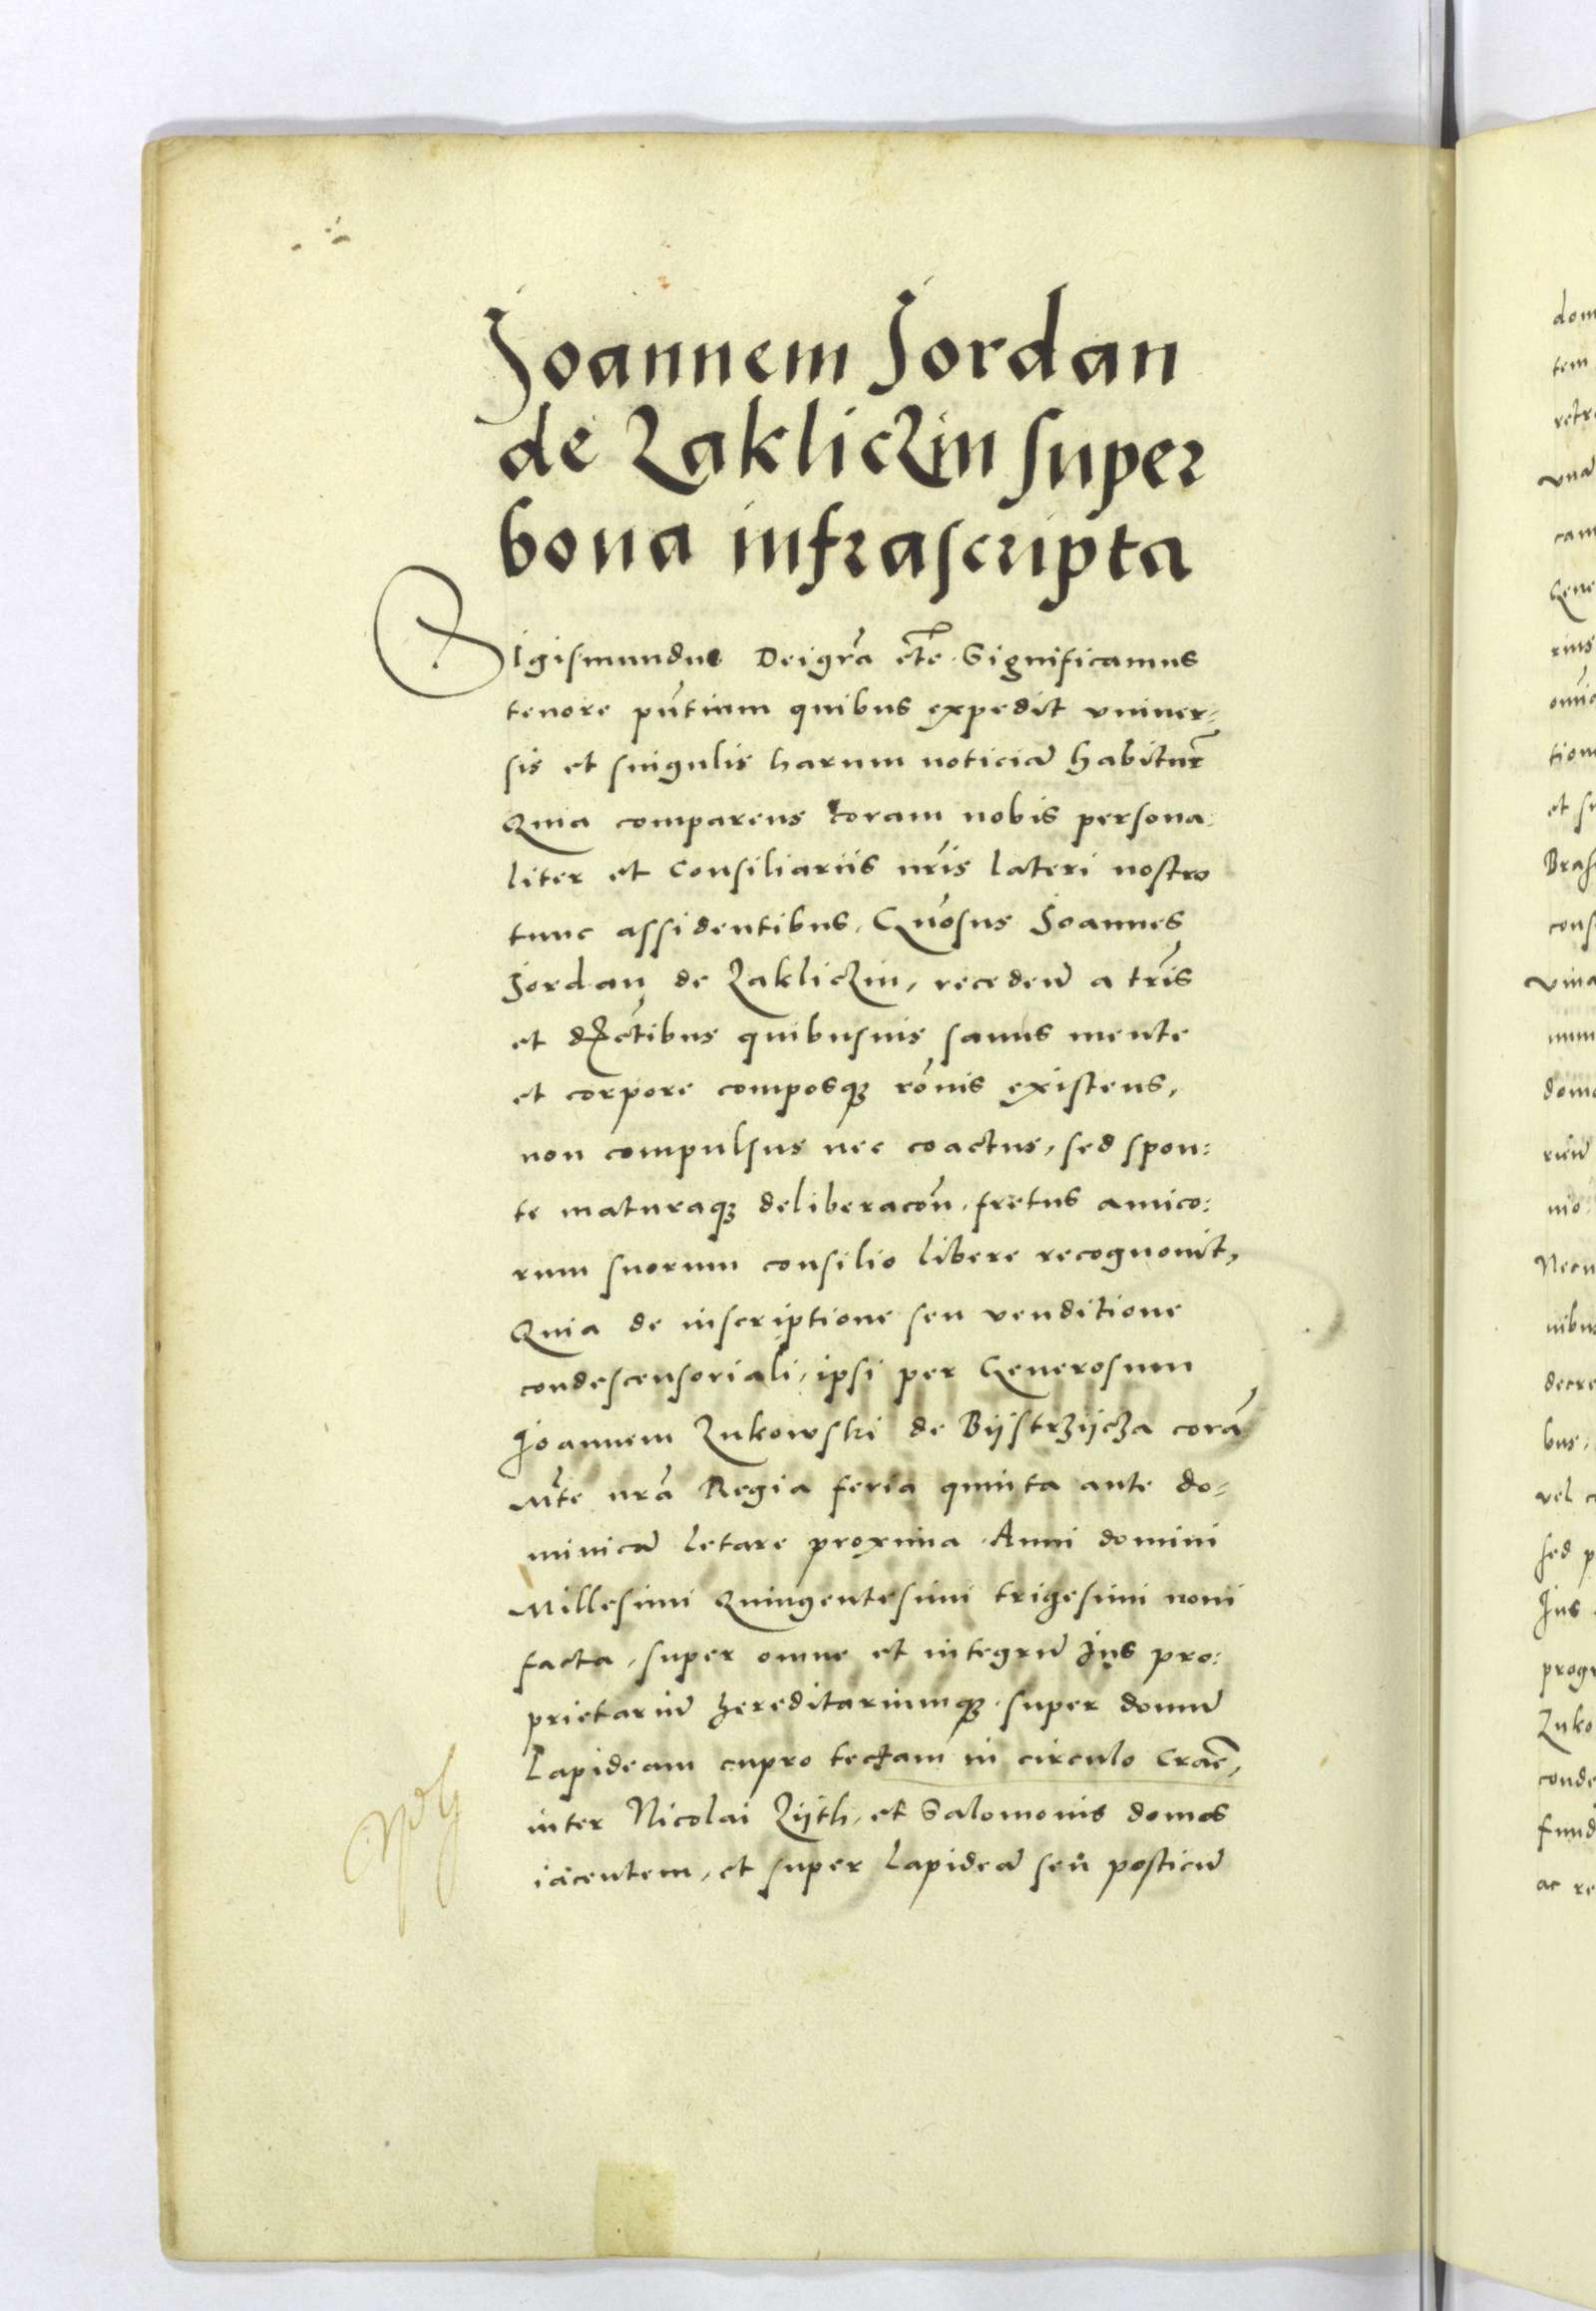 Joannem Jordan
de Zakliczin super
bona infrascripta
Sigismundus Dei gra etc. Significamus
tenore pntium quibus expedit vniuer=
sis et singulis harum noticiā habitur
Quia comparens coram nobis persona:
liter et Consiliariis nris lateri nostro
tunc assidentibus, Gnosus Joannes
Jordan de Zakliczin, recedeñ a tris
et dictibus quibusuis sanus mente
et corpore composq3 ronis existens,
non compulsus nec coactus, sed spon:
te maturaq3 deliberacōn. fretus amico:
rum suorum consilio libere recognouit,
Quia de inscriptione seu venditione
condescensoriali, ipsi per Generosum
Joannem Zukowski de Bijstrzijcza corā
Mte nrā Regia feria quinta ante do=
minicā Letare proxima Anni domini
Millesimi Quingentesimi trigesimi noni
facta, super omne et integrū Jus pro:
prietariū hereditariumq3 super domū
Lapideam cupro tectam in circulo Crac̄,
inter Nicolai Zijth, et Salomonis domos
iacentem, et super Lapideā seu posticū
dom
tem
retr
vnā
cam
Gene
rius
omnio
tion
et su
Bras
cons
vina
num
domo
nio:
Necn
nibus
decre
bus,
vel c
sed p
Jus
progr
Zuko
conde
fund
ac re